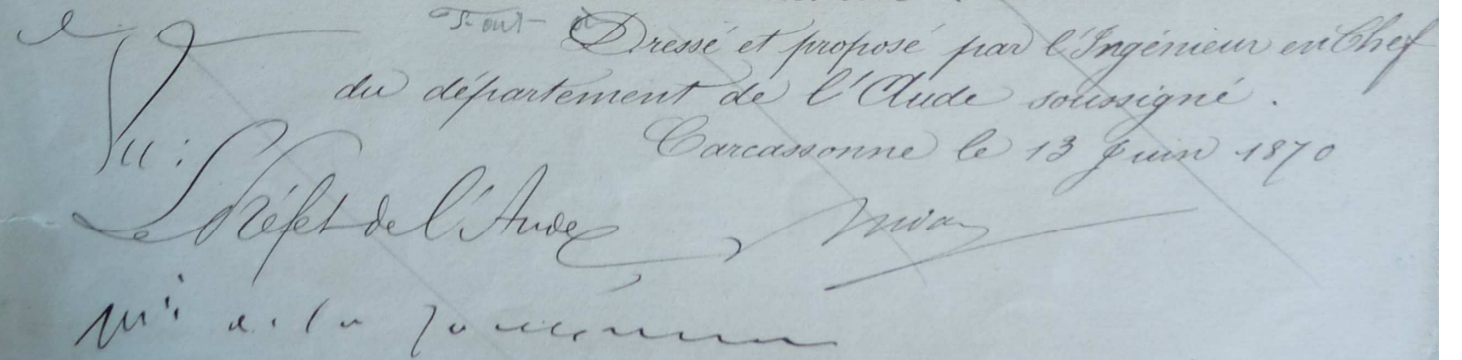 Dressé et proposé par l'Ingénieur en Chef
du département de l'Aude soussigné.
Carcassonne le 13 Juin 1870
Vu:
Le Préfet de l'Aude